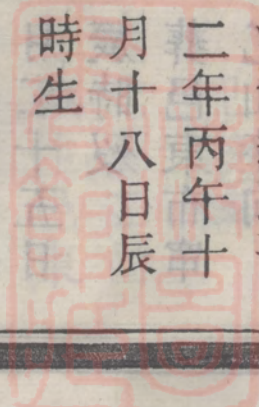 二年丙午十
月十八日辰
時生